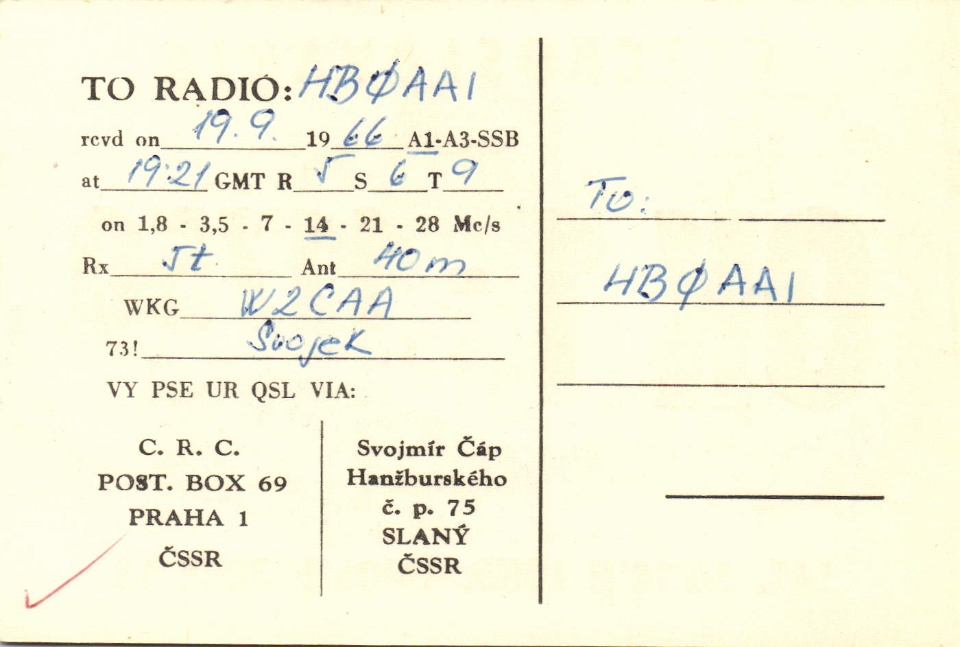 TO RADIO: HBØAAI
rcvd on 19.9. 1966 A1-A3-SSB
at 19:21 GMT R 5 S 6 T 9
on 1,8 - 3,5 - 7 - 14 - 21 - 28 Mc/s
Rx 5t Ant 40m
WKG W2CAA
73! Svojek
VY PSE UR QSL VIA:
C. R. C.
POST. BOX 69
PRAHA 1
ČSSR
Svojmír Čáp
Hanžburského
č. p. 75
SLANÝ
ČSSR
To:
HBØAAI